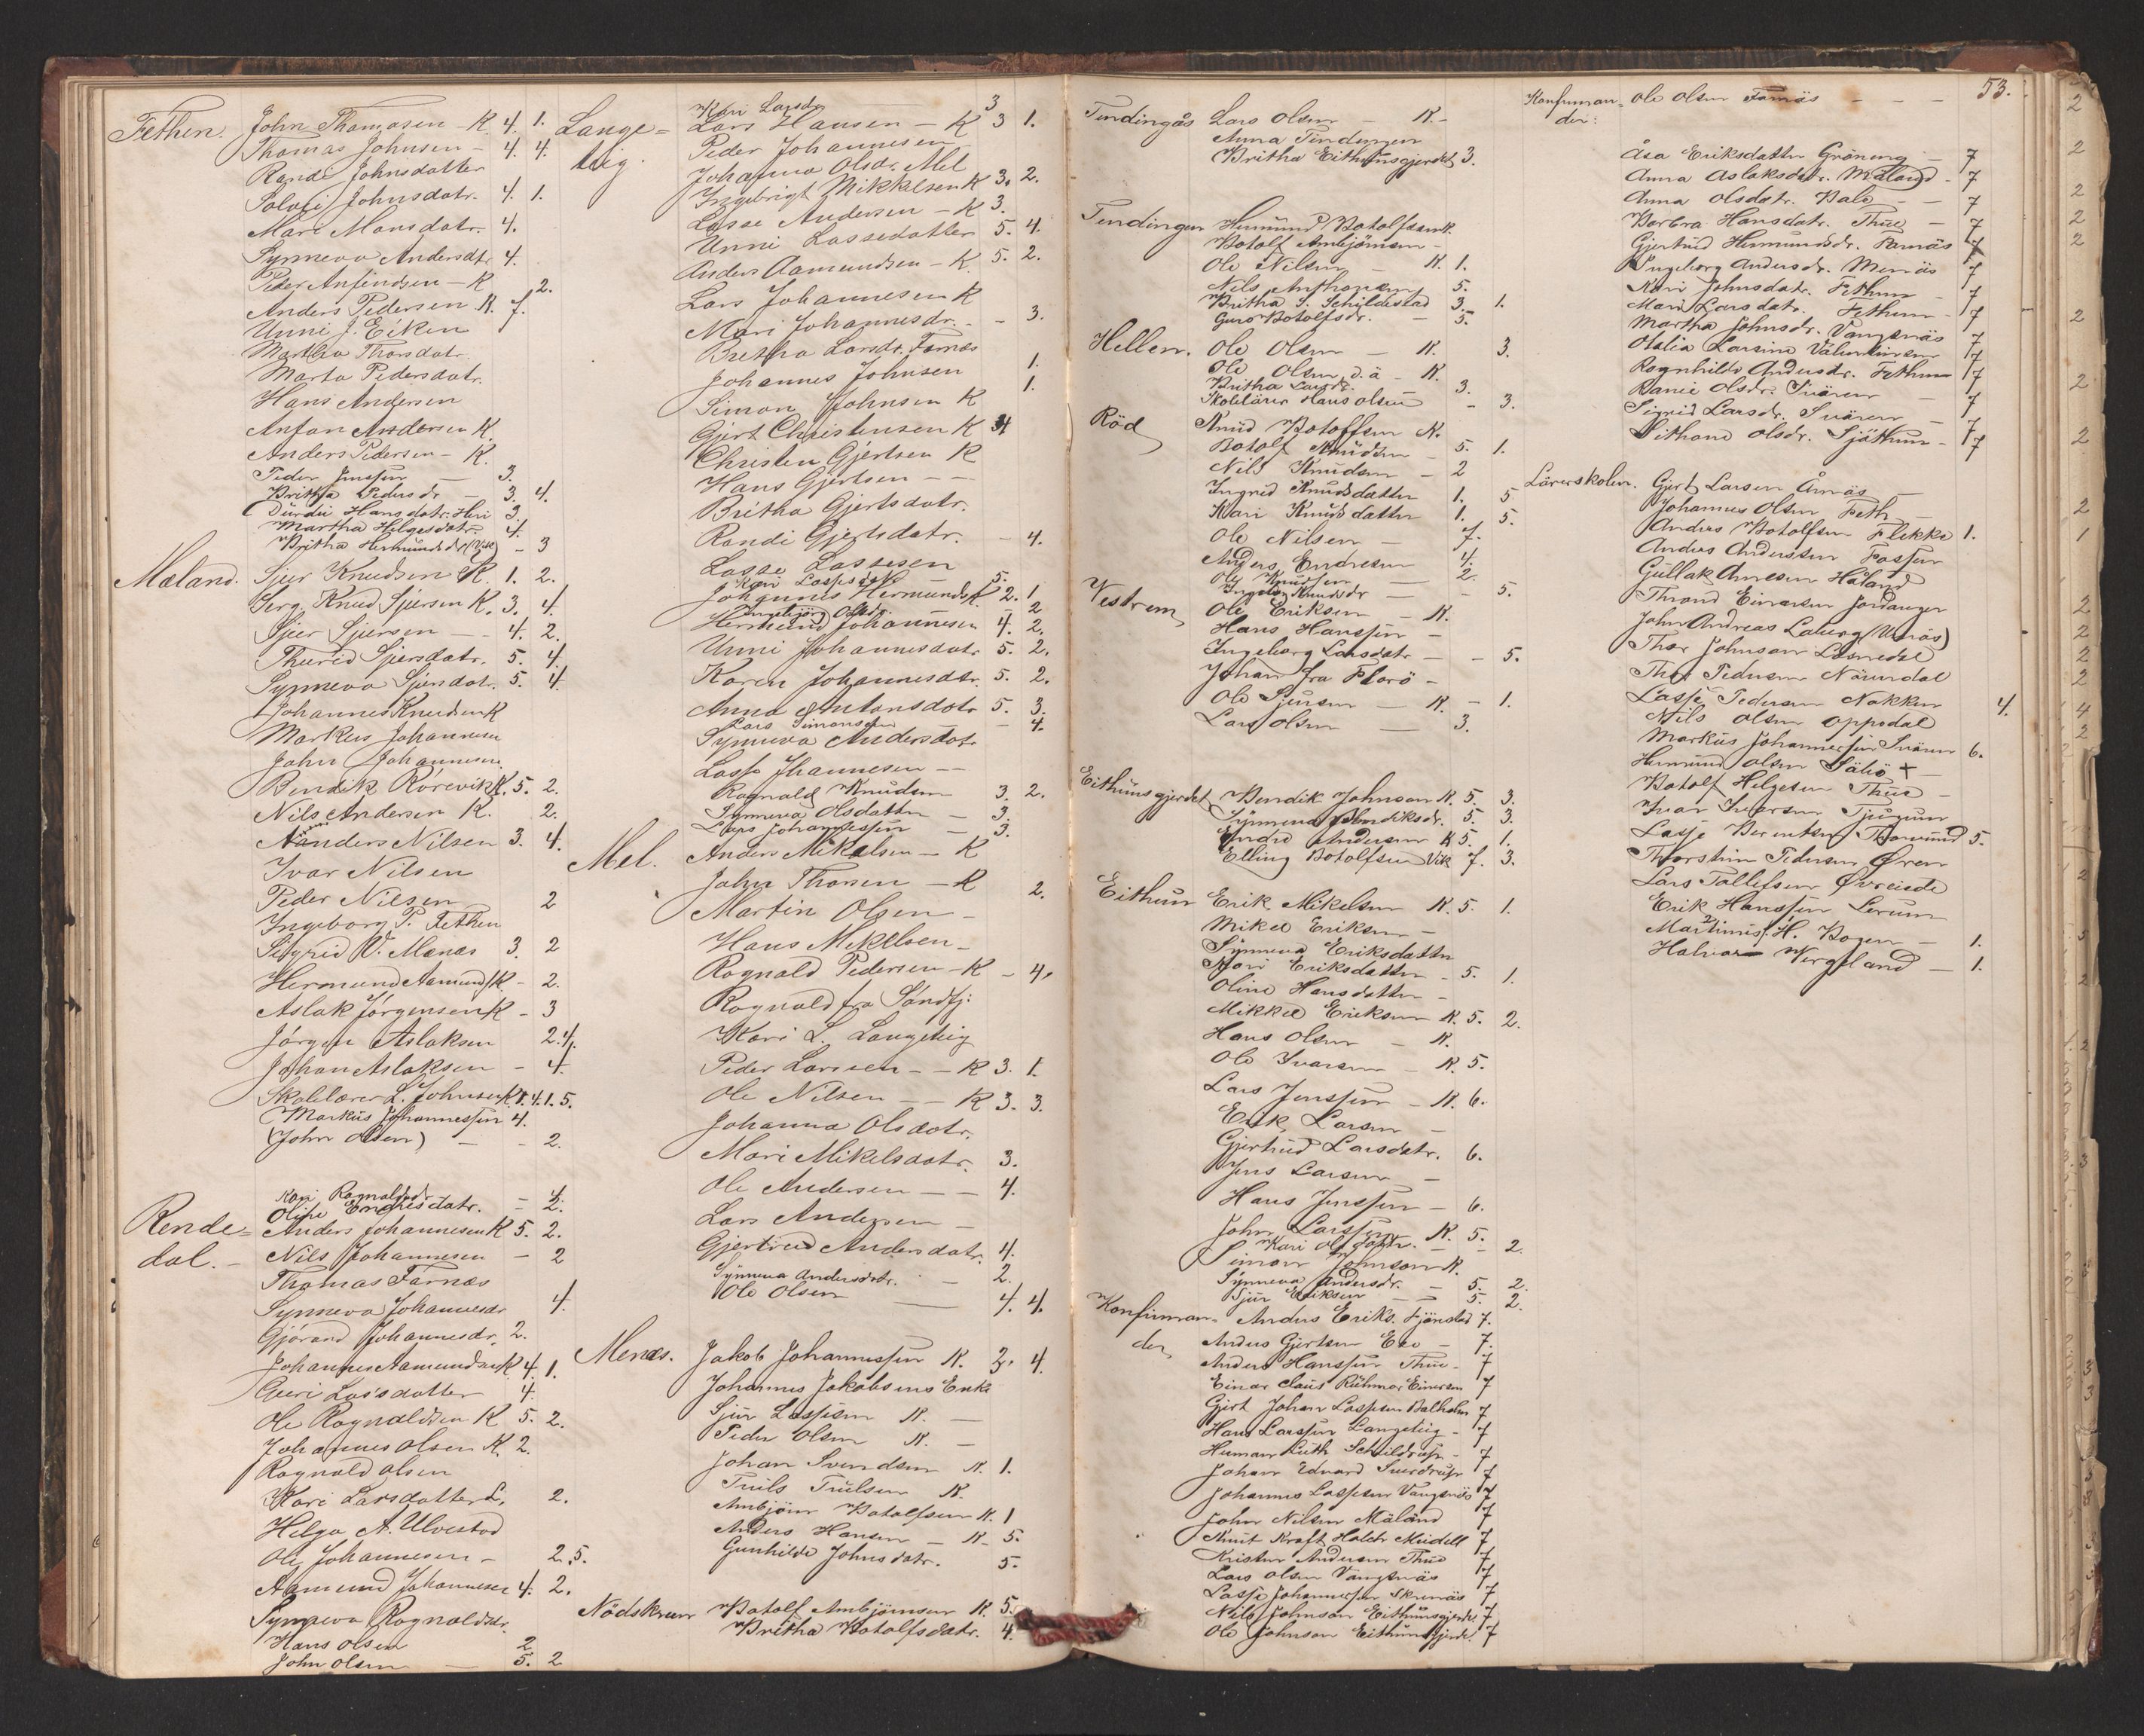 Fethen. John Thomasen - K. 4. 1.
Thomas Johnsen - 4. 4.
Randi Johnsdatter
Solvei Johnsdatr. 4. 1.
Mari Monsdatr. 4.
Synneva Andersdtr 4.
Peder Anfindsen - K 2.
Anders Pedersen K. 7.
Unni J. Eken
Martha Thorsdatr.
Marta Pedersdatr.
Hans Andersen
Anfan Andersen K.
Anders Pedersen - K.
Peder Jenssen - 3.
Britha Pedersdr - 3. 4.
Martha Helgesdatr. 4.
Britha Hermundsdr (Vik) - 3
Mæland. Sjur Knudsen K. 1. 2.
Serg. Knud Sjursen K. 3. 4.
Sjur Sjursen - - 4. 2.
Thurid Sjursdatr. 5. 4.
Synneva Sjursdatr. 5. 4.
Johannes Knudsen K
Markus Johannesen
John Johannesen
Bendik Rörevik K. 5. 2.
Nils Andersen K. 2.
Anders Nilsen 3. 4.
Ivar Nilsen
Peder Nilsen 2
Ingeborg P. Fethen
Sigrid V. Menæs 3. 2
Hermund Aamunds K. - 2.
Aslak Jörgensen K - 3
Jörgen Aslaksen 2. 4.
Johan Aslaksen - 4
Skolelærer L. Johnsen K. 7. 4. 1. 5.
Markus Johannessen 4.
(John Olsen) - - 2.
Kari Ragnaldsdr.
Oline Endresdatr. - 2.
Rende= Anders Johannesen K 5. 2.
dal. - Nils Johannesen - 2
Thomas Farnæs
Synneva Johannesdr 4.
Gjörand Johannesdr. 2.
Johannes Aamundsen K 4. 1.
Guri Lassdatter 4.
Ole Ragnaldsen K 5. 2.
Johannes Olsen K. 2.
Ragnald Olsen
Kari Larsdatter L. 2.
Helga A. Ulvestad
Ole Johannesen - 2. 5.
Aamund Johannesen 4. 2.
Synneva Ragnaldsdr.
Hans Olsen 2
John Olsen - 5. 2
Kari Larsdr 3
Lange= Lars Hansen - K 3 1.
teig. Peder Johannesen
Johanna Olsdr. Mel
Ingebrigt Mikkelsen K 3. 2.
Lasse Andersen - K 3.
Unni Lassedatter 5. 4.
Anders Aamundsen - K. 5. 2.
Lars Johannesen K
Mari Johannesdr. - 3.
Britha Larsdr. Farnæs
Johannes Johnsen 1.
Simon Johnsen K 1.
Gjert Christensen K 4
Christen Gjertsen K
Hans Gjertsen - -
Britha Gjertsdatr.
Randi Gjertsdatr. - 4.
Lasse Lassesen
Kari Lassesdatr 5.
Johannes Hermunds K 2. 1
Ingebjörg Olsdr. - 2
Hermund Johannesen 4. 2.
Unni Johannesdatr 5. 2.
Karen Johannesdtr. 5. 2.
Anna Antonsdatr 5. 3.
Lars Simonsen - 4.
Synneva Andersdatr
Lasse Jhannesen -
Ragnald Knudsen 3. 2.
Synneva Olsdatter - 3.
Lars Johannessen - 3.
Mel. Anders Mikalsen - K
John Thorsen - K 2.
Martin Olsen -
Hans Mikkelsen -
Ragnald Pedersen - K - 4.
Ragnald fra Söndfj:
Kari L. Langeteig
Peder Larssen - - K 3. 1.
Ole Nilsen - - K 3. 3.
Johanna Olsdatr.
Mari Mikelsdatr. 3.
Ole Andersen - - 4.
Lars Andersen -
Gjertrud Andersdatr. 4.
Synneva Andersdatr. - 2.
Ole Olsen - 4. 4.
Menæs. Jakob Johannessen K. 3. 4.
Johannes Jakobsens Enke
Sjur Lassesen K.
Peder Olsen K. -
Johan Svendsen K. 1.
Truls Trulsen K.
Ambjörn Botolfsen K. 1
Anders Hansen - K. 5.
Gunhilde Johnsdatr. 5.
Nödskreen Botolf Ambjörnsen K. 5.
Britha Botolfsdatr. 4.
Tendingås Lars Olsen - K. -
Anna Tendingen
Britha Eithunsgjerdet 3.
Tendingen Hermund Botolfsen K.
Botolf Ambjörnsen -
Ole Nilsen - K. 1.
Nils Anthonsen 5.
Britha S. Schildestad 3. 1.
Guro Botolfsdr. - 5.
Hellen. Ole Olsen - K. 3.
Ole Olsen d. ä - K.
Britha Larsdr. 3.
Skolelärer Hans Olsen - 3.
Röd Knud Botolfsen K.
Botolf Knudsen - 5. 1.
Nils Knudsen - 2
Ingrid Knudsdatter 1. 5
Kari Knudsdatter 1. 5.
Ole Nilsen - 7.
Anders Endresen 4.
Ole Knudsen - 2.
Ingeborg Knudsdr - - 5.
Vestrem Ole Eriksen - K.
Hans Hanssen -
Ingeborg Larsdatr - - 5.
Johan fra Florö -
Ole Sjursen - K. - 1.
Lars Olsen - 3.
Eithunsgjerdet Bendik Johnson K. 5. 3.
Synneva Bendiksdr. 5. 3.
Endre Andersen K 5. 1.
Elling Botolfsen Vik 7. 3.
Eithun Erik Mikelsen K. 5. 1.
Mikel Eriksen -
Synneva Eriksdatter
Kari Eriksdatter - 5. 1.
Oline Hansdatter -
Mikkel Eriksen K. 5. 2.
Hans Olsen - K.
Ole Ivarsen - K. 5.
Lars Jenssen - K. 6.
Erik Larsen -
Gjertrud Larsdatr. 6.
Jens Larsen -
Hans Jenssen - 6.
John Larssen K. 5.
Kari Olsdattr. - - 2.
Simon Johnson K.
Synneva Andersdr. - 5. 2.
Sjur Eriksen - - 5. 2.
Konfirman= Anders Eriks. Fjörestad 7.
der Anders Gjertsen Ese - 7.
Anders Hanssen Thue - 7
Einar Claus Rühmor Einersen 7
Gjert Johan Lassesen Balholm 7
Hans Larssen Langeteig - 7
Herman Luth Schildrup - 7
Johan Edvard Sverdrup 7
Johannes Lassesen Vangsnäs 7
John Nilsen Mäland 7
Knut Kraft Holch Müdell 7
Kristen Andersen Thue 7
Lars Olsen Vangsnäs 7
Lasse Johannessen Skrenäs 7
Nils Johnson Eithunsgjerdet 7
Ole Johnson Eithunsgjerdet 7
53.
Konfirman= Ole Olsen Farnäs - - -
der:
Åsa Eriksdatter Gröneng - 7
Anna Aslaksdatr. Mäland - 7
Anna Olsdatr. Bale - - 7
Barbra Hansdatr. Thue - 7
Gjertrud Hermundsdr. Farnäs 7
Ingeborg Andersdr. Menäs 7
Kari Johnsdatr. Fethen - 7
Mari Larsdatr. Fethen - 7
Martha Johnsdr. Vangsnäs 7
Otalia Larsine Valentinsen 7
Ragnhilde Andersdr. Fethen 7
Ranei Olsdr. Svären - 7
Sigrid Larsdr. Svären - 7
Sithone Olsdr. Sjöthun - 7
Lärerskolen. Gjert Larsen Årnäs -
Johannes Olsen Feth -
Anders Botolfsen Flekke 1.
Anders Anderssen Fosser
Gullak Arnesen Håland
Thrond Einarsen Jordanger
John Andreas Laberg (Urnäs)
Thor Johnson Lösnedal
Thor Pedersen Näurdal
Lasse Pedersen Nakken 4.
Nils Olsen Oppedal
Markus Johannessen Svären 6.
Hermund Olsen Säbö +
Botolf Helgesen Thue -
Ivar Iversen Tjugum
Lasse Berentsen Thorsund 5.
Thorstein Pedersen Øren
Lars Tollefsen Øvreeide
Erik Hanssen Lerum
Martinus H. Bogen - 1.
Halvar Vergeland - 1.